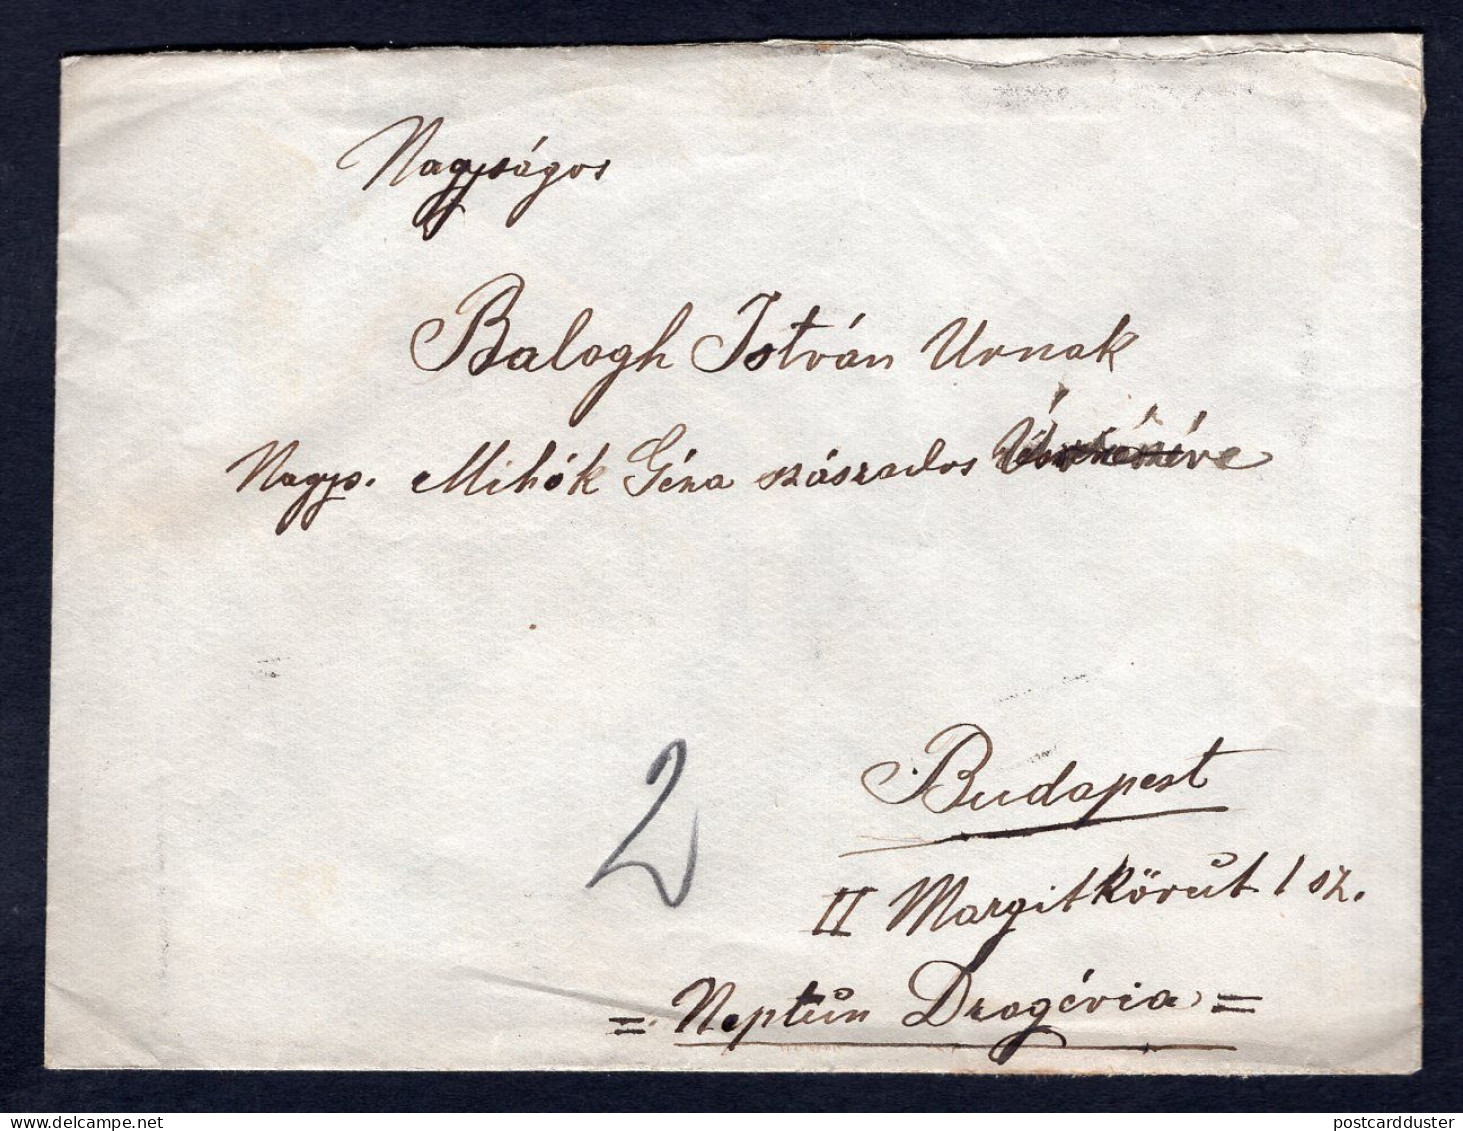 Nagyságos
Balogh István Urnak
Nagys. Mihók Géza százados
2
Budapest
II Margitkörút 1 sz.
= Neptun Drogéria =
postcardduster